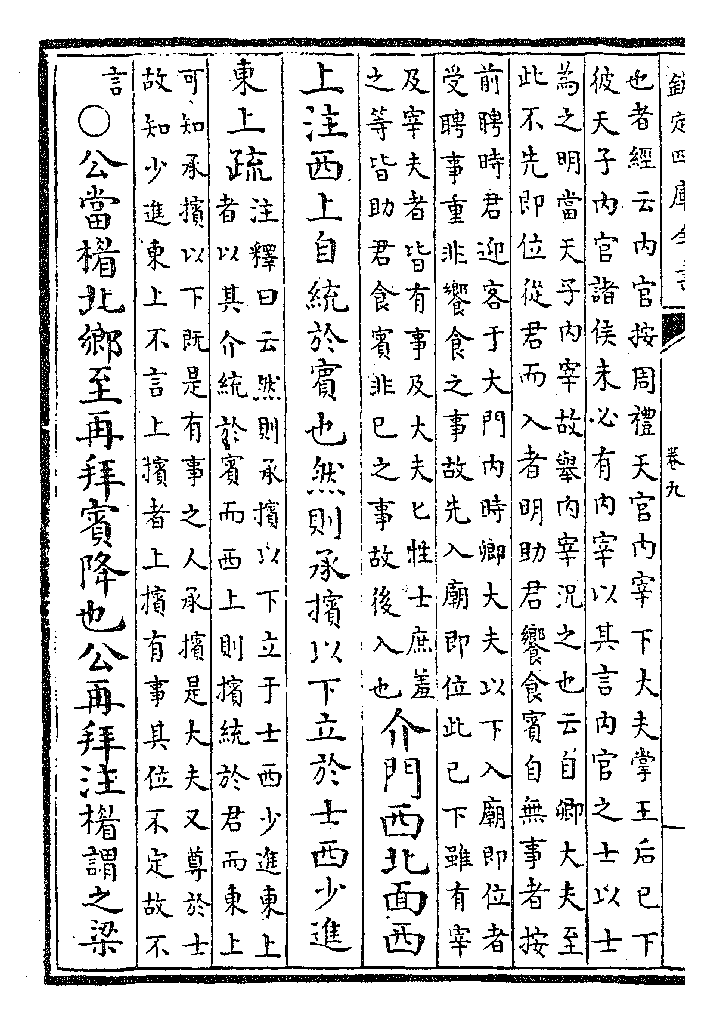 欽定四庫全書
卷九
也者經云内官按周禮天官内宰下大夫掌王后已下
彼天子内官諸侯未必有内宰以其言内官之士以士
為之明當天子内宰故舉内宰況之也云自卿大夫至
此不先即位從君而入者明助君饗食賓自無事者按
前聘時君迎客于大門内時卿大夫以下入廟即位者
受聘事重非饗食之事故先入廟即位此已下雖有宰
及宰夫者皆有事及大夫匕牲士庶羞
之等皆助君食賓非已之事故後入也
介門西北面西
上注西上自統於賓也然則承擯以下立於士西少進
東上疏
注釋曰云然則承擯以下立于士西少進東上
者以其介統於賓而西上則擯統於君而東上
可知承擯以下既是有事之人承擯是大夫又尊於士
故知少進東上不言上擯者上擯有事其位不定故不
言
○公當楣北鄉至再拜賓降也公再拜注楣謂之梁